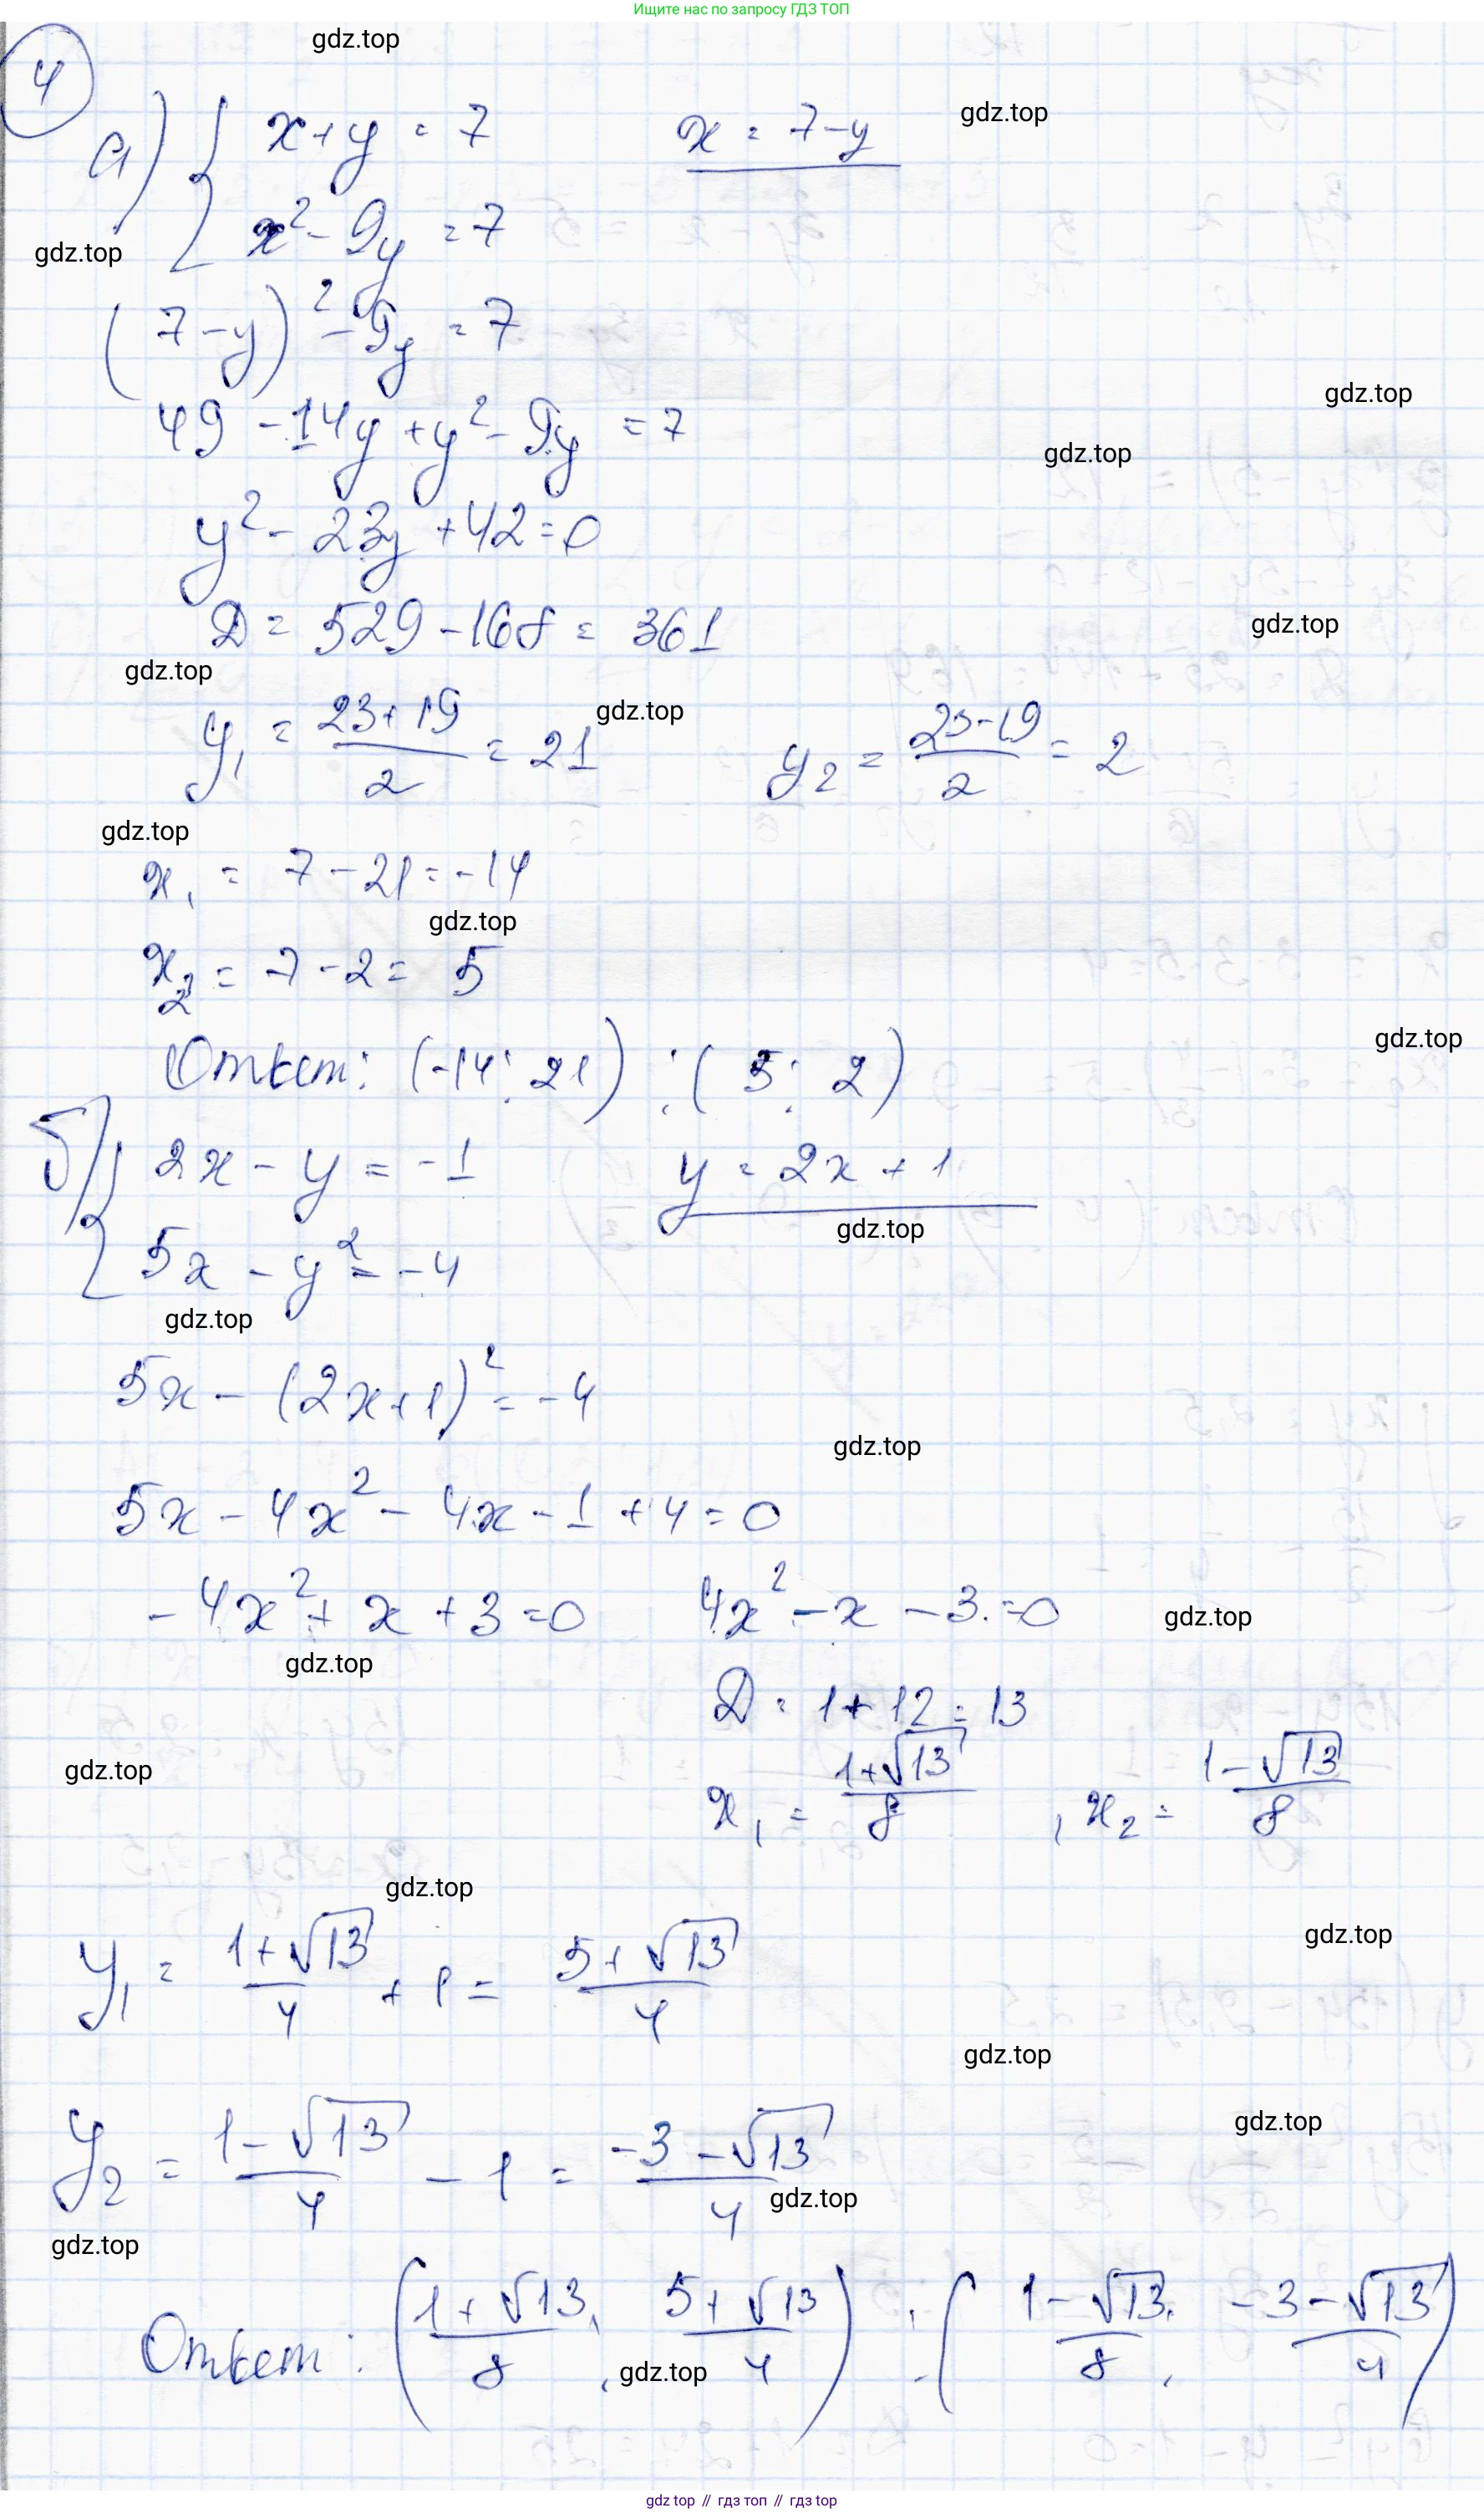 Ищите нас по запросу ГДЗ ТОП
gdz.top
4
а) { x + y = 7    x = 7 - y
gdz.top
x² - 9y = 7
gdz.top
(7 - y)² - 9y = 7
gdz.top
49 - 14y + y² - 9y = 7
gdz.top
y² - 23y + 42 = 0
D = 529 - 168 = 361
gdz.top
gdz.top
y₁ = (23 + 19)/2 = 21    y₂ = (23 - 19)/2 = 2
gdz.top
gdz.top
x₁ = 7 - 21 = -14
gdz.top
x₂ = 7 - 2 = 5
gdz.top
Ответ: (-14; 21) ; (5; 2)
б) { 2x - y = -1    y = 2x + 1
gdz.top
5x - y² = -4
gdz.top
5x - (2x + 1)² = -4
gdz.top
5x - 4x² - 4x - 1 + 4 = 0
-4x² + x + 3 = 0    4x² - x - 3 = 0
gdz.top
gdz.top
D = 1 + 12 = 13
gdz.top
x₁ = (1 + √13)/8 , x₂ = (1 - √13)/8
gdz.top
gdz.top
y₁ = (1 + √13)/4 + 1 = (5 + √13)/4
gdz.top
gdz.top
y₂ = (1 - √13)/4 - 1 = (-3 - √13)/4
gdz.top
gdz.top
Ответ: ((1 + √13)/8 ; (5 + √13)/4) ; ((1 - √13)/8 ; (-3 - √13)/4)
gdz.top
gdz top // гдз топ // гдз top